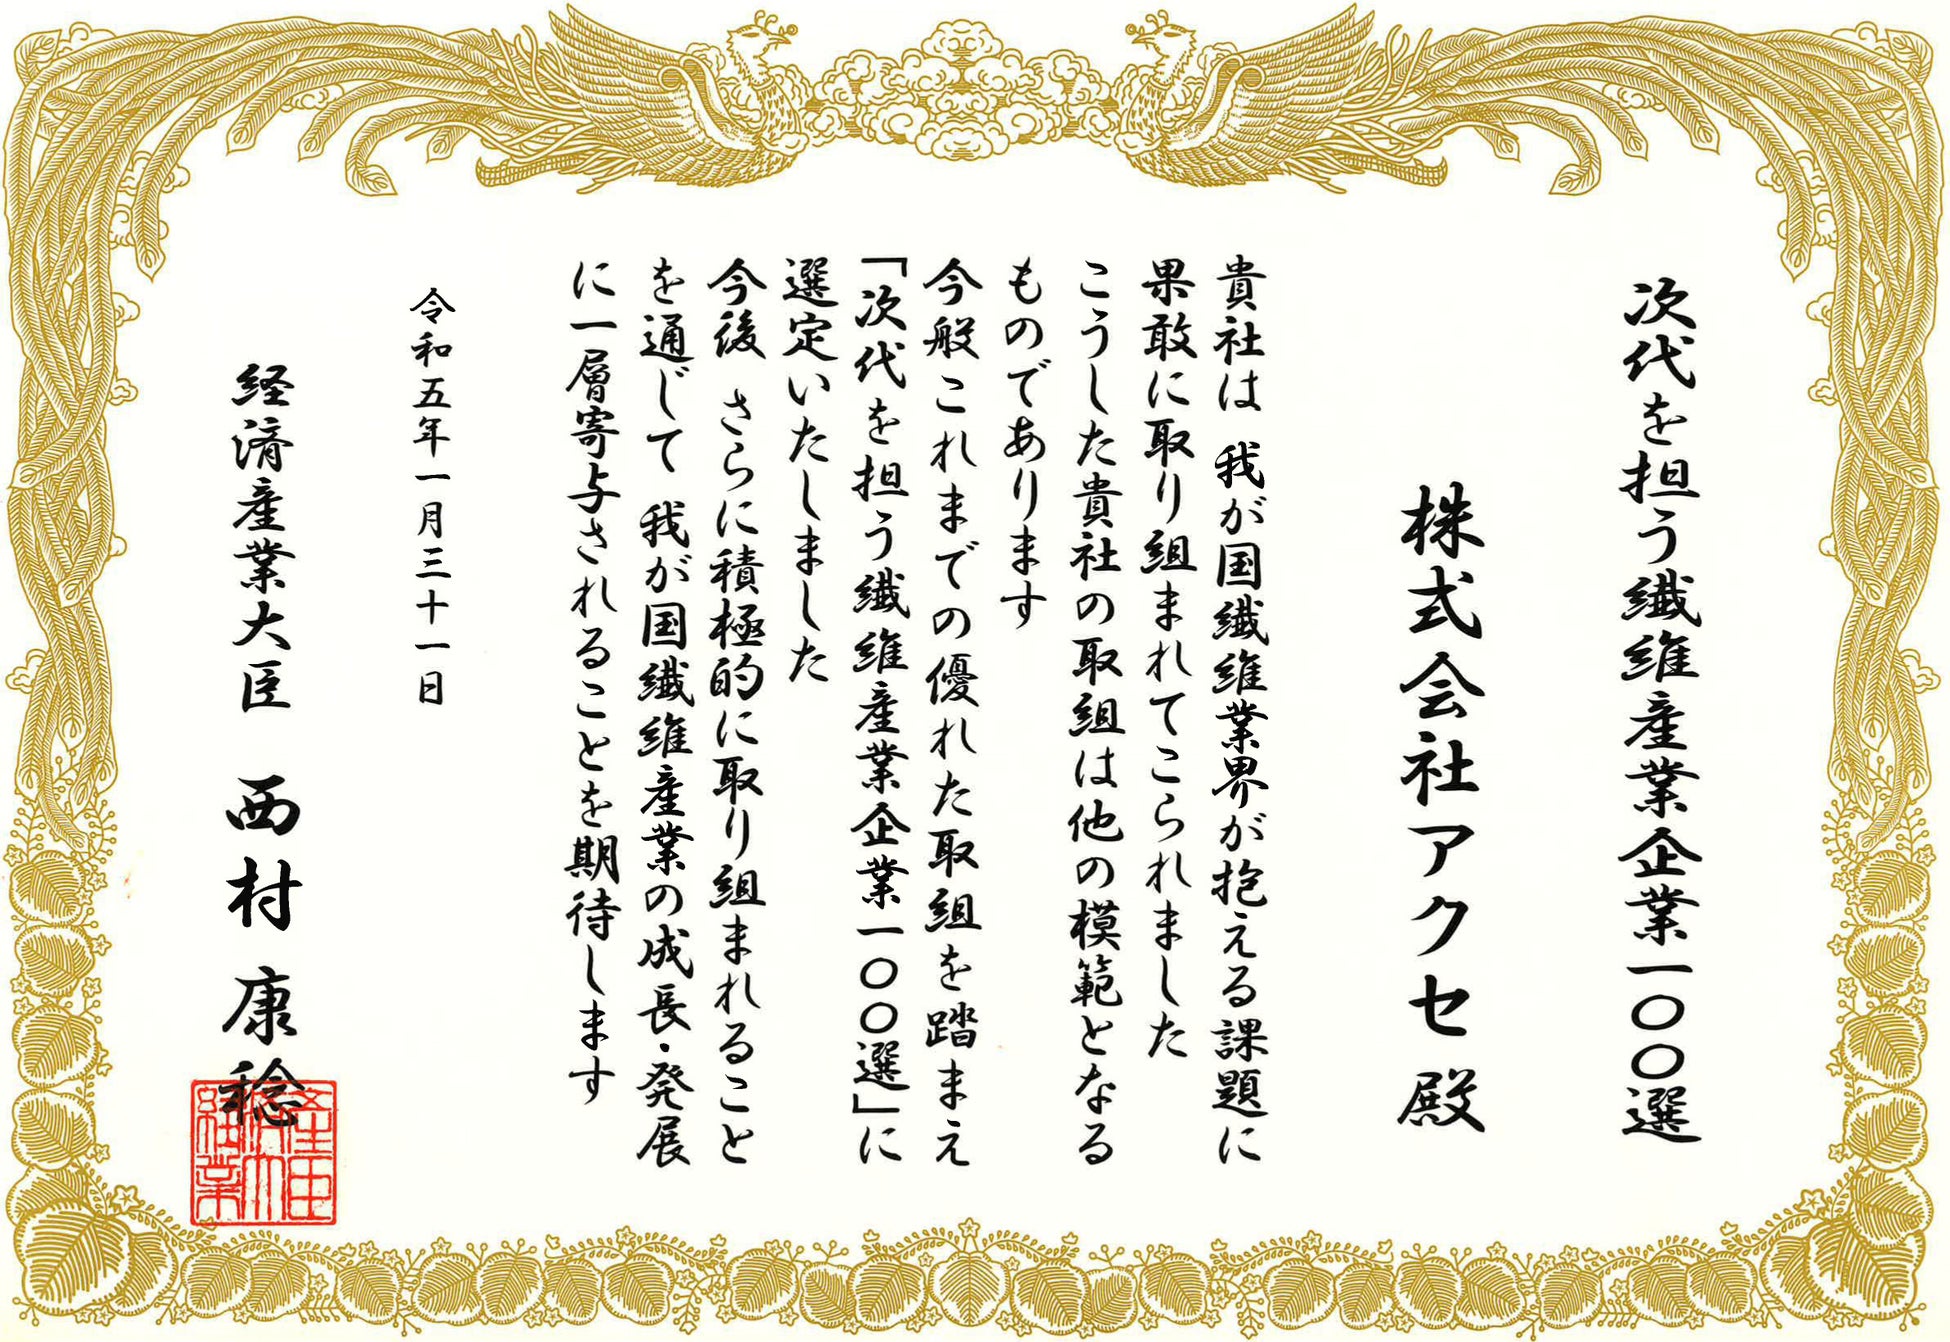 次代を担う繊維産業企業一〇〇選
株式会社アクセ殿
貴社は 我が国繊維業界が抱える課題に
果敢に取り組まれてこられました
こうした貴社の取組は他の模範となる
ものであります
今般これまでの優れた取組を踏まえ
「次代を担う繊維産業企業一〇〇選」に
選定いたしました
今後 さらに積極的に取り組まれること
を通じて 我が国繊維産業の成長・発展
に一層寄与されることを期待します
令和五年一月三十一日
経済産業大臣 西村康稔